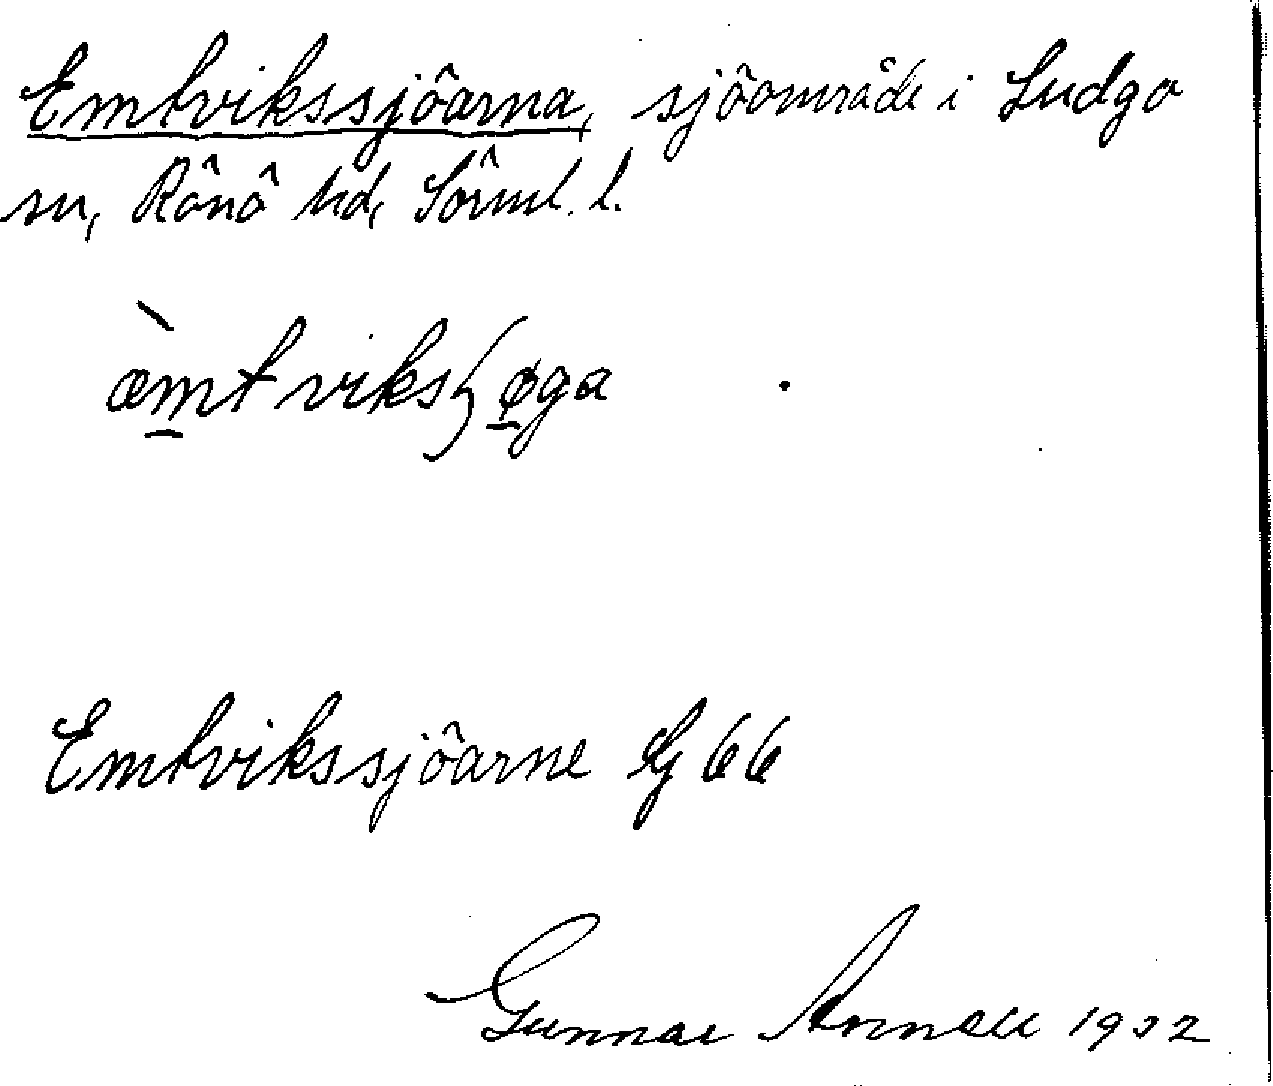 Emtvikssjöarna, sjöområde i Ludgo
sn, Rönö hd, Sörml. l.
æ̀mtviksʃøga
Emtvikssjöarne Lg 66
Gunnar Annell 1932